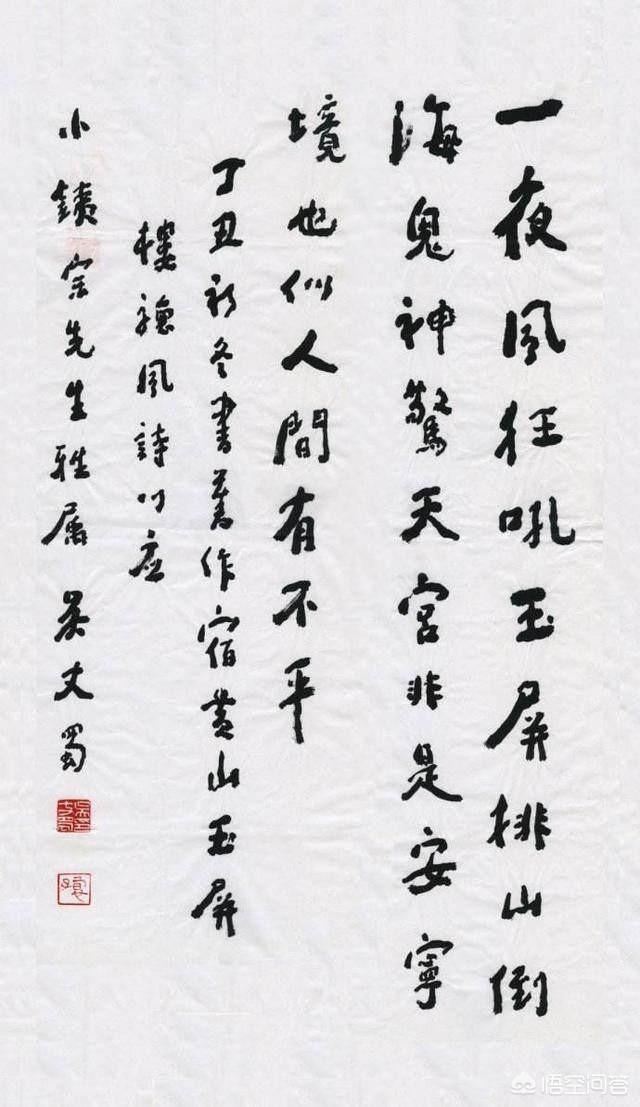 一夜風狂吼玉屏排山倒
海鬼神驚天宮非是安寧
境也似人間有不平
丁丑初冬書舊作宿黄山玉屏
樓聽風詩以应
小宗先生雅属 吴丈蜀
悟空问答